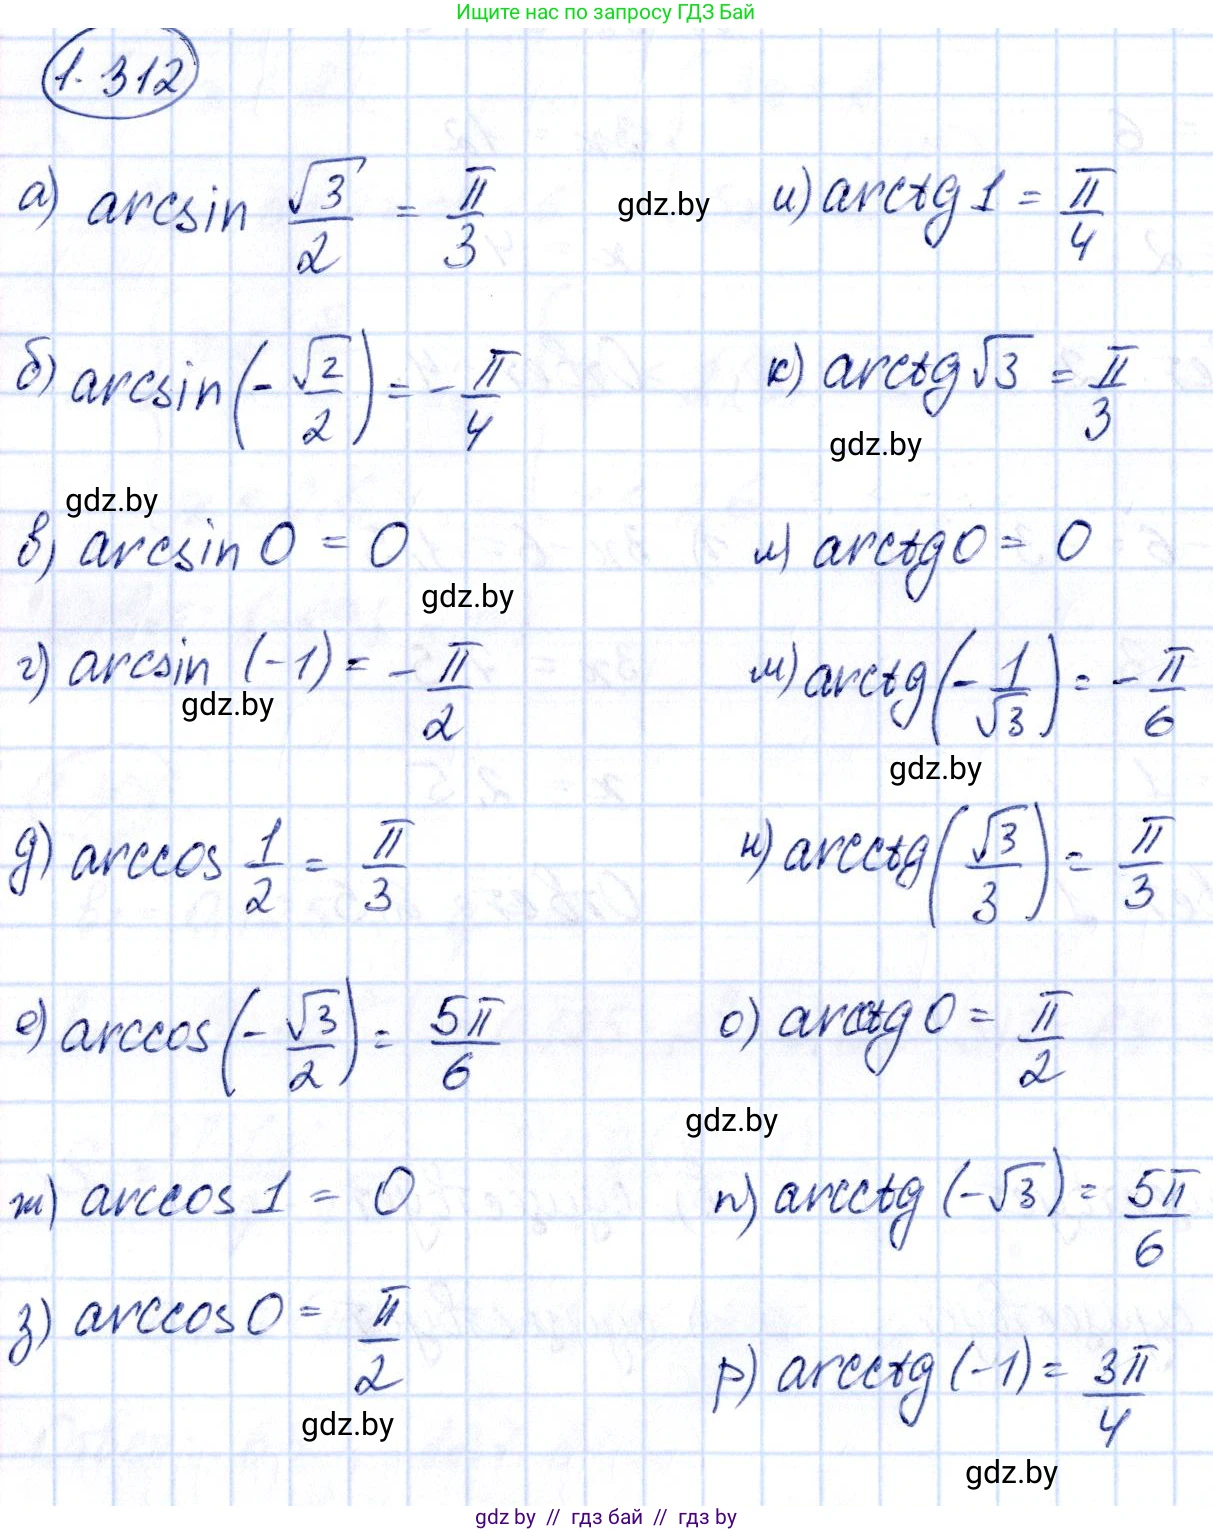 Ищите нас по запросу ГДЗ Бай
1.312
а) arcsin √3/2 = π/3
gdz.by
и) arctg 1 = π/4
б) arcsin(-√2/2) = -π/4
к) arctg √3 = π/3
gdz.by
gdz.by
в) arcsin 0 = 0
л) arctg 0 = 0
gdz.by
г) arcsin (-1) = -π/2
м) arctg(-1/√3) = -π/6
gdz.by
gdz.by
д) arccos 1/2 = π/3
н) arcctg(√3/3) = π/3
е) arccos(-√3/2) = 5π/6
о) arcctg 0 = π/2
gdz.by
ж) arccos 1 = 0
п) arcctg (-√3) = 5π/6
з) arccos 0 = π/2
р) arcctg (-1) = 3π/4
gdz.by
gdz.by
gdz.by // гдз бай // гдз by